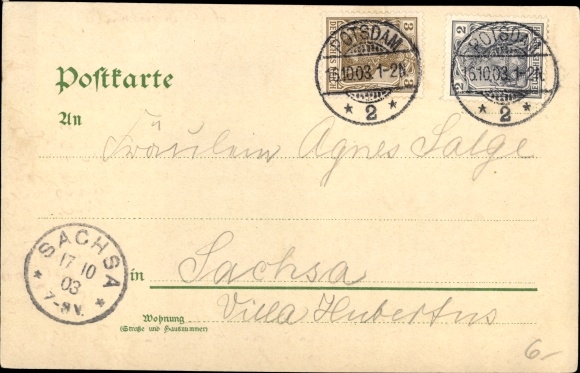 POTSDAM
16.10.03.1-2N.
* 2 *
POTSDAM
16.10.03.1-2N.
* 2 *
3 3
2 2
Postkarte
An
Fräulein Agnes Salge
SACHSA
17 10
03
7-8V.
in Sachsa
Wohnung
(Straße und Hausnummer)
Villa Hubertus
6-